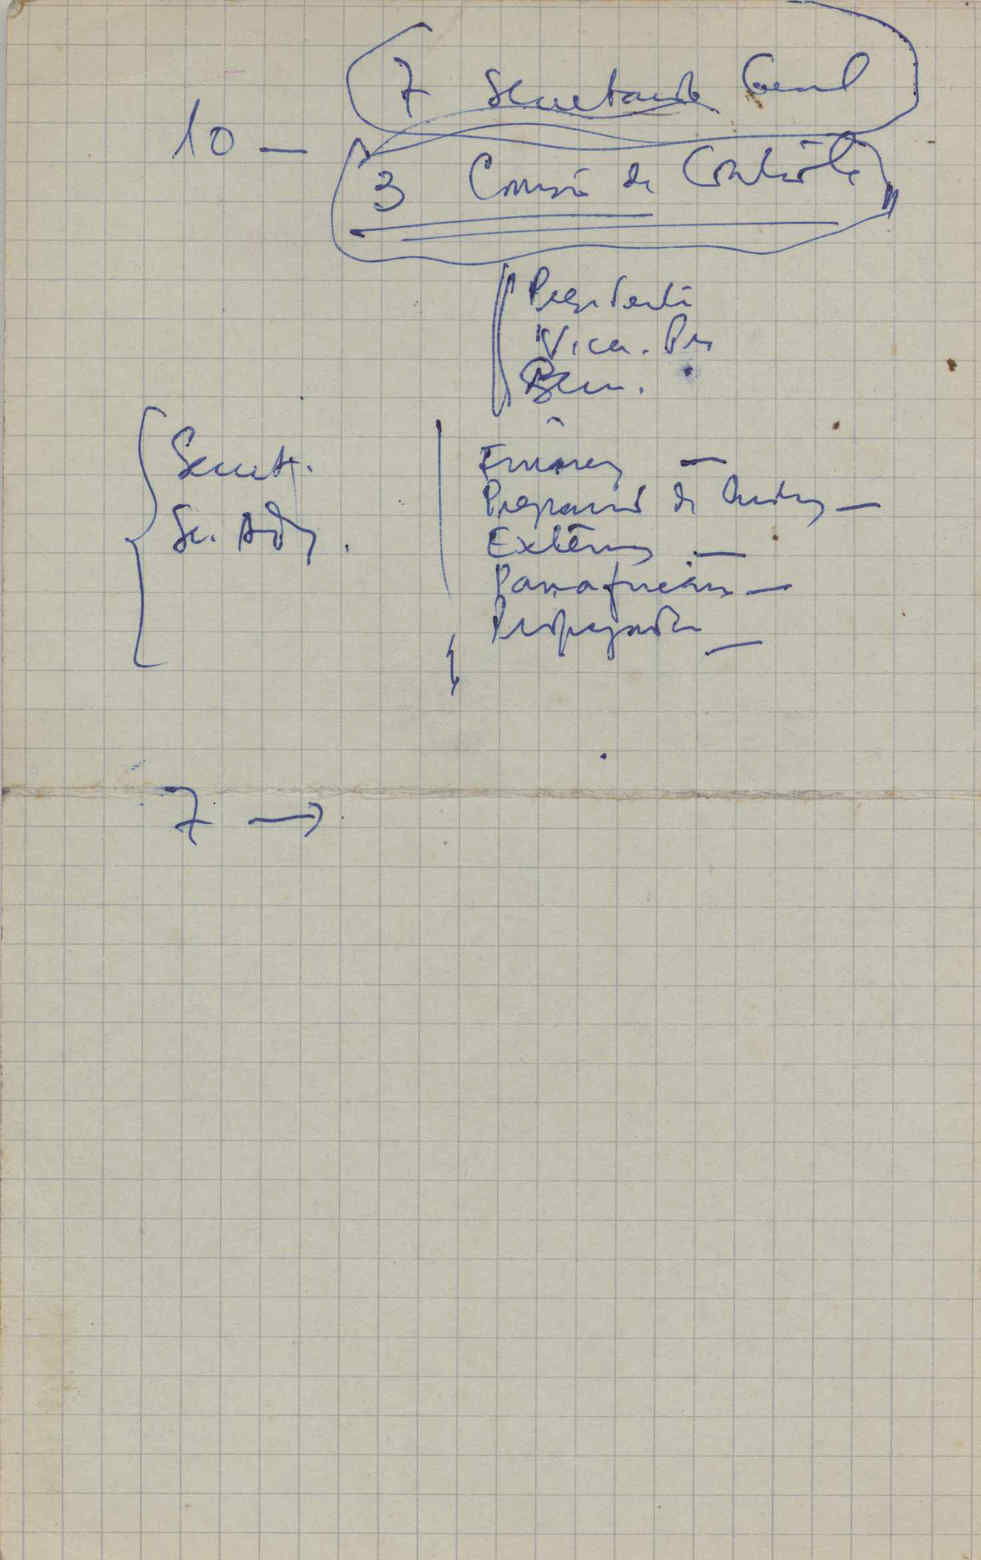 7 Secretariado Geral
10 —
3 Comissão de Contrôle
Presidente
Vice. Pres
Secret.
Sec. Adj.
Finanças —
Preparação de Quadros —
Externos —
Panafricanos —
Propaganda —
7 →